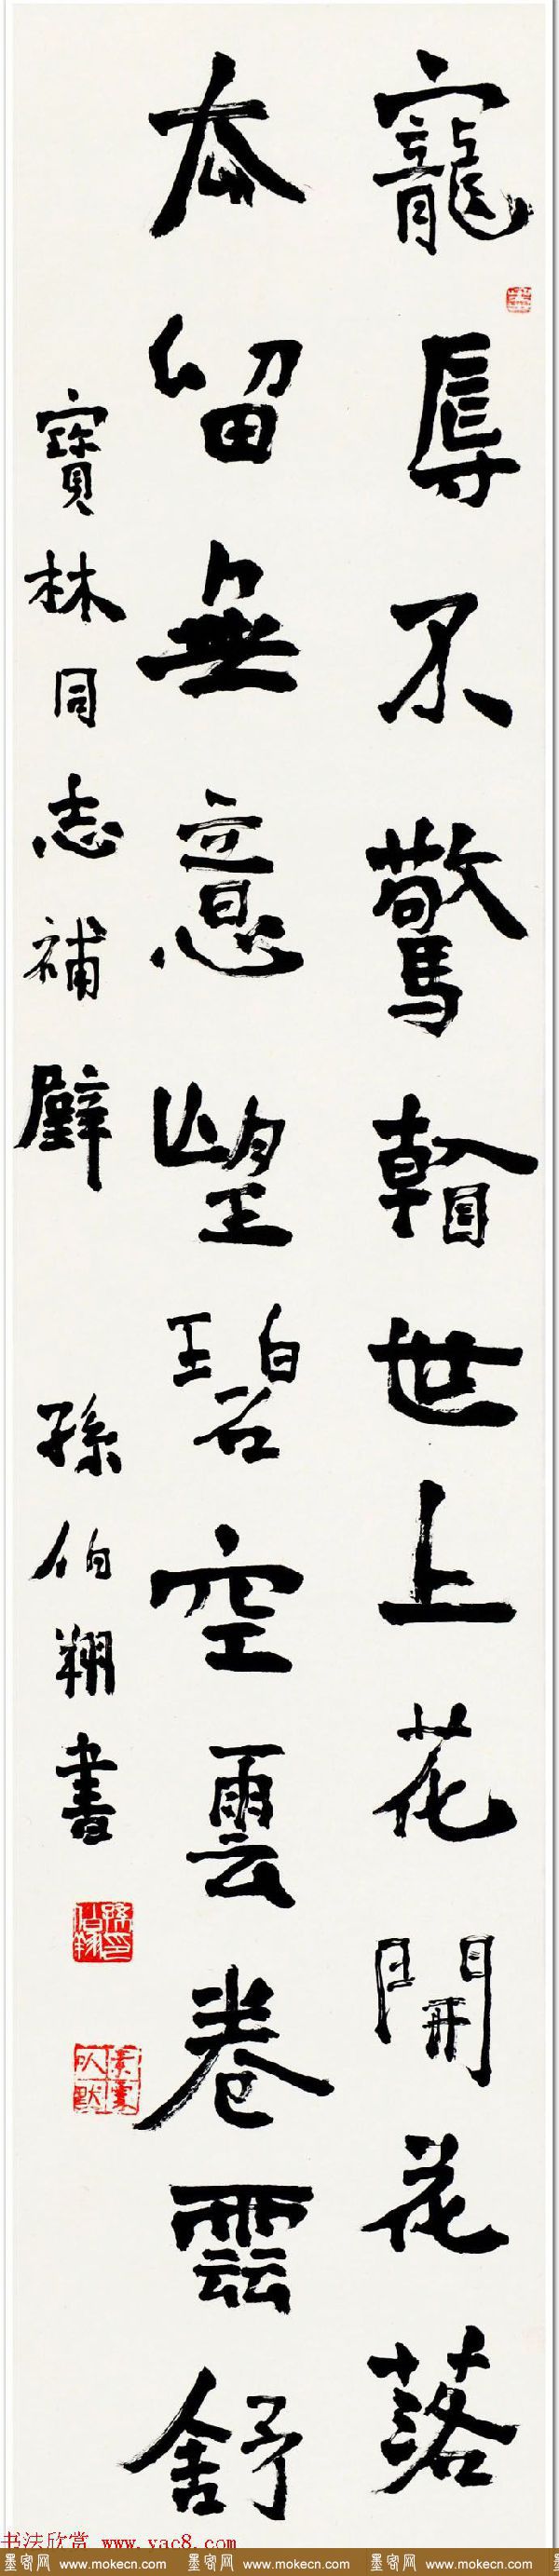 寵辱不驚看世上花開花落
去留無意望碧空雲卷雲舒
寶林同志補壁 孫伯翔書
书法欣赏 www.yac8.com
墨客网 www.mokecn.com 墨客网 www.mokecn.com 墨客网 www.mokecn.com